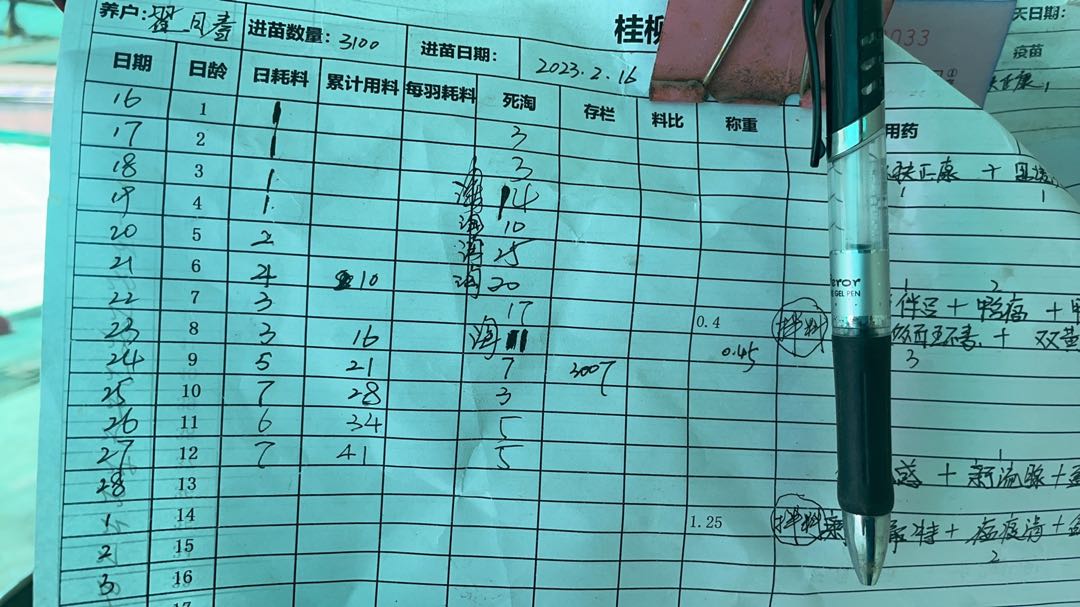 养户: 翟月春 进苗数量: 3100 进苗日期: 2023.2.16 桂柳
日期 日龄 日耗料 累计用料 每羽耗料 死淘 存栏 料比 称重 用药
16 1 1 3
17 2 1 3
18 3 1 淘 14
19 4 1 淘 10
20 5 2 淘 25
21 6 4 10 淘 20
22 7 3 17 0.4 拌料
23 8 3 16 淘 11 0.45
24 9 5 21 7 3007
25 10 7 28 3
26 11 6 34 5
27 12 7 41 5
28 13
1 14 1.25 拌料
2 15
3 16
17
天日期:
疫苗
033
扶正康 +
1 1
2
+ 鸭瘟 +
+ 双黄
3
GEL PEN
+ 新流腺 +
+ 瘟疫清 +
2